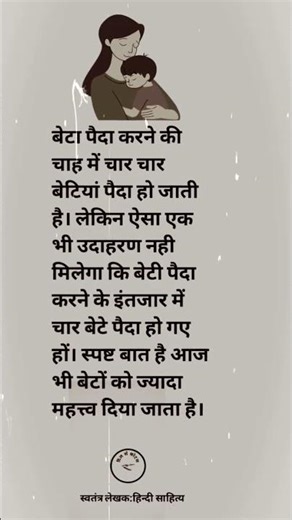 बेटा पैदा करने की
चाह में चार चार
बेटियां पैदा हो जाती
है। लेकिन ऐसा एक
भी उदाहरण नही
मिलेगा कि बेटी पैदा
करने के इंतजार में
चार बेटे पैदा हो गए
हों। स्पष्ट बात है आज
भी बेटों को ज्यादा
महत्त्व दिया जाता है।
स्वतंत्र लेखक:हिन्दी साहित्य